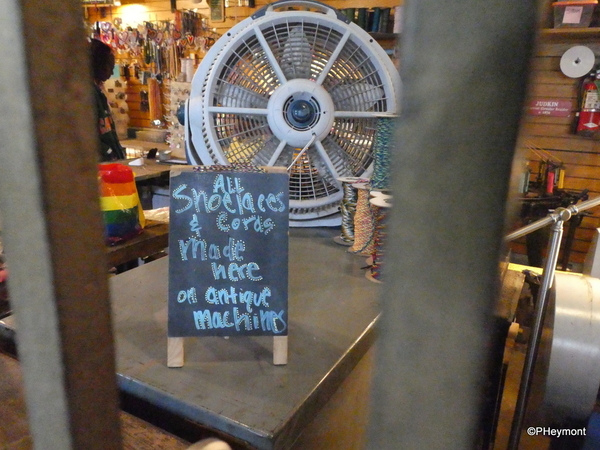 All
Shoelaces
& Cords
Made
here
on antique
machines
JUDKIN
©PHeymont